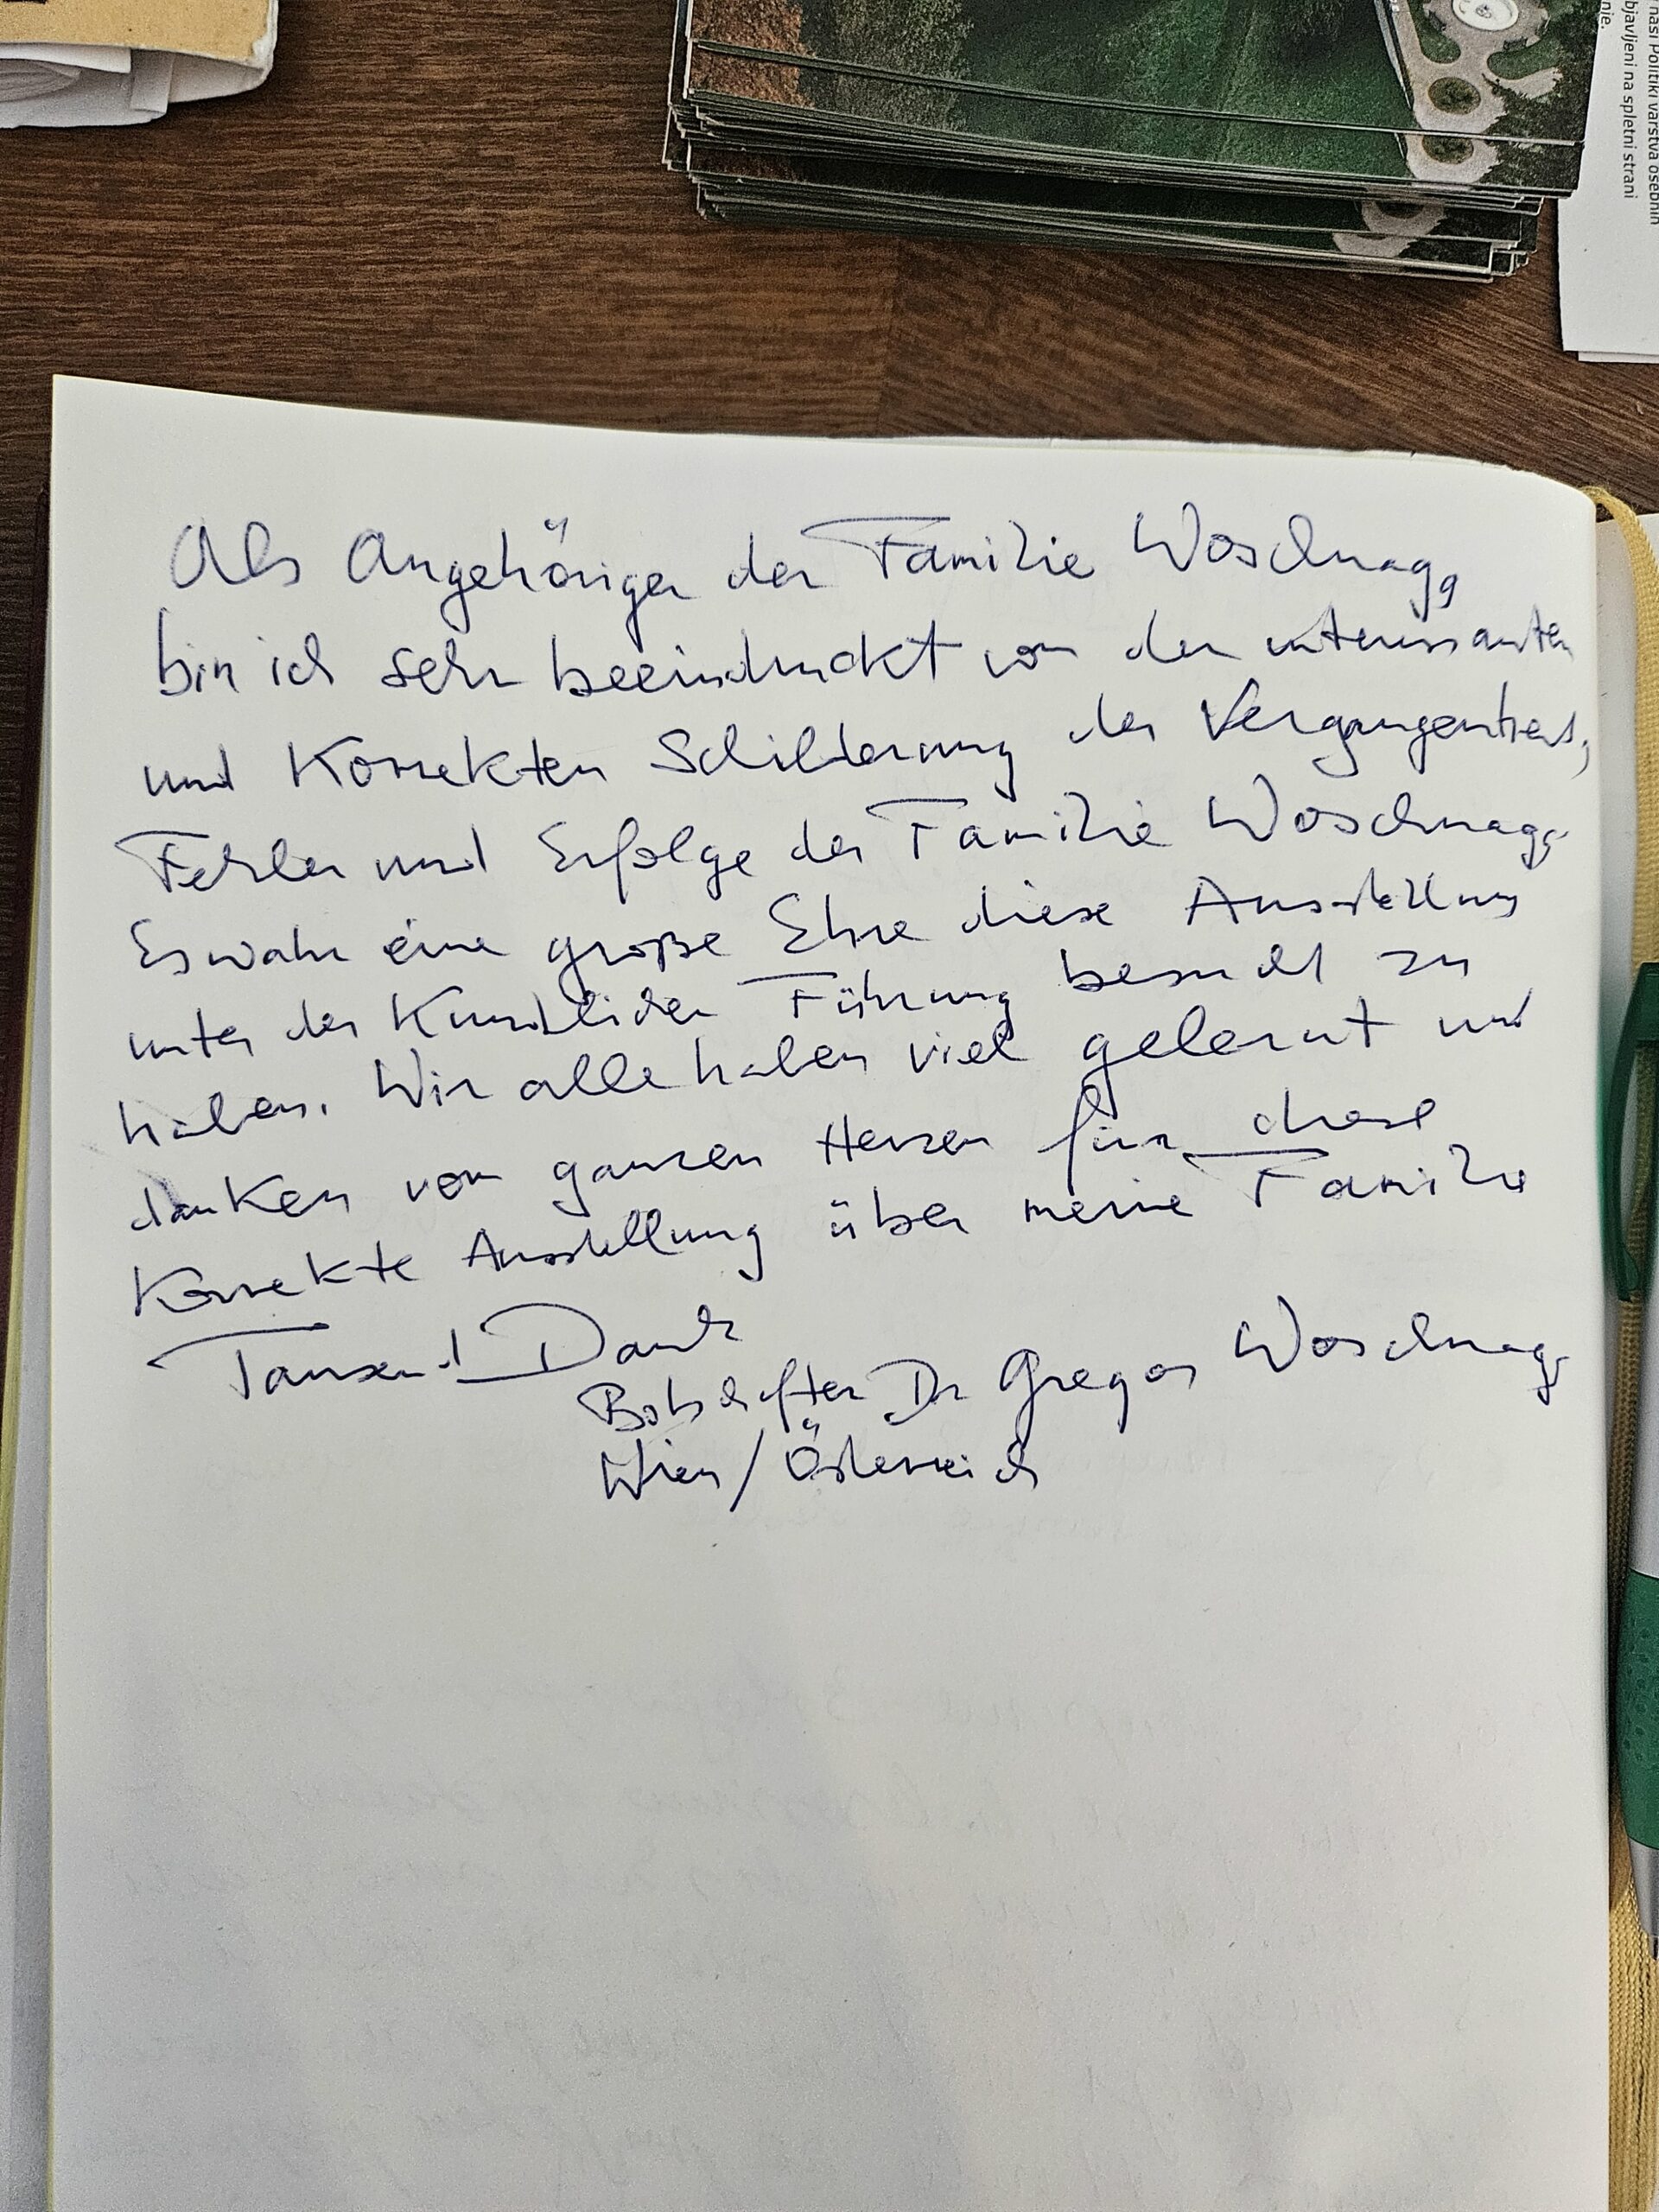 naši Politiki varstva osebnih
bjavljeni na spletni strani
nje.
Als Angehöriger der Familie Woschnagg
bin ich sehr beeindruckt von der interessanten
und Korrekten Schilderung der Vergangenheit,
Fehler und Erfolge der Familie Woschnagg
Es wahr eine große Ehre diese Ausstellung
unter der Kundlichen Führung besucht zu
haben. Wir alle haben viel gelernt und
danken von ganzen Herzen für diese
Korrekte Ausstellung über meine Familie
Tausend Dank
Botschafter Dr Gregor Woschnagg
Wien / Österreich